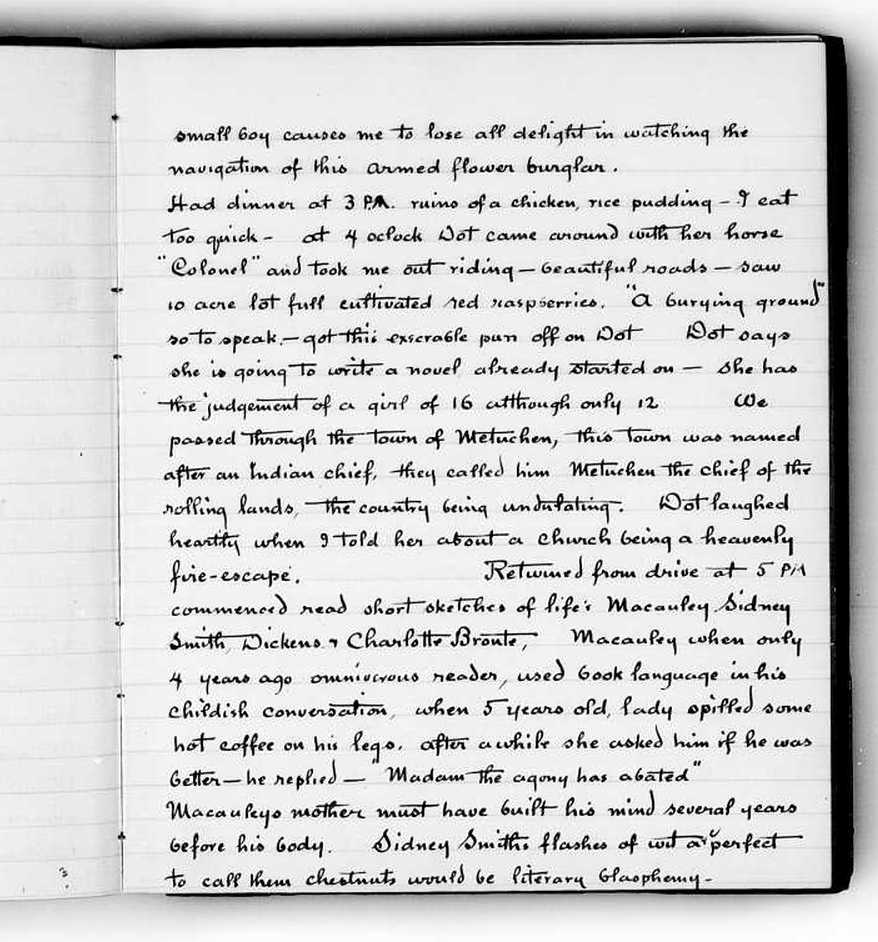 small boy causes me to lose all delight in watching the
navigation of this armed flower burglar.
Had dinner at 3 P.M. ruins of a chicken, rice pudding – I eat
too quick – at 4 oclock Dot came around with her horse
"Colonel" and took me out riding – beautiful roads – saw
10 acre lot full cultivated red raspberries. "A burying ground"
so to speak. – got this execrable pun off on Dot Dot says
she is going to write a novel already started on – she has
the judgement of a girl of 16 although only 12 We
passed through the town of Metuchen, this town was named
after an Indian chief, they called him Metuchen the chief of the
rolling lands, the country being undulating. Dot laughed
heartily when I told her about a church being a heavenly
fire-escape. Returned from drive at 5 PM
commenced read short sketches of life's Macauley Sidney
Smith, Dickens & Charlotte Bronte, Macauley when only
4 years ago omnivorous reader, used book language in his
childish conversation, when 5 years old, lady spilled some
hot coffee on his legs, after awhile she asked him if he was
better – he replied – Madam the agony has abated"
Macauleys mother must have built his mind several years
before his body. Sidney Smiths flashes of wit are perfect
to call them chestnuts would be literary blasphemy –